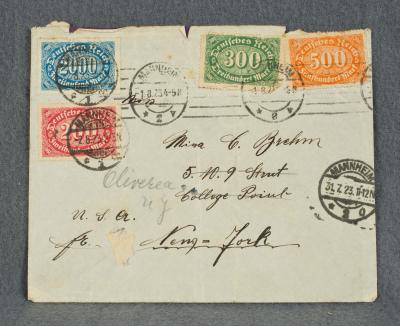 Deutsches Reich
2000
Zweitausend Mark
Deutsches Reich
300
Dreihundert Mark
Deutsches Reich
500
Fünfhundert Mark
MANNHEIM
1.8.23.4-5N
* 2 A
Deutsches Reich
200
Zweihundert Mark
Miss C. Brehm
5. 10. 9 Street
College Point
Oliverea
N Y
U. S. A.
New-York
MANNHEIM
31.7.23.11-12N
* 2 0